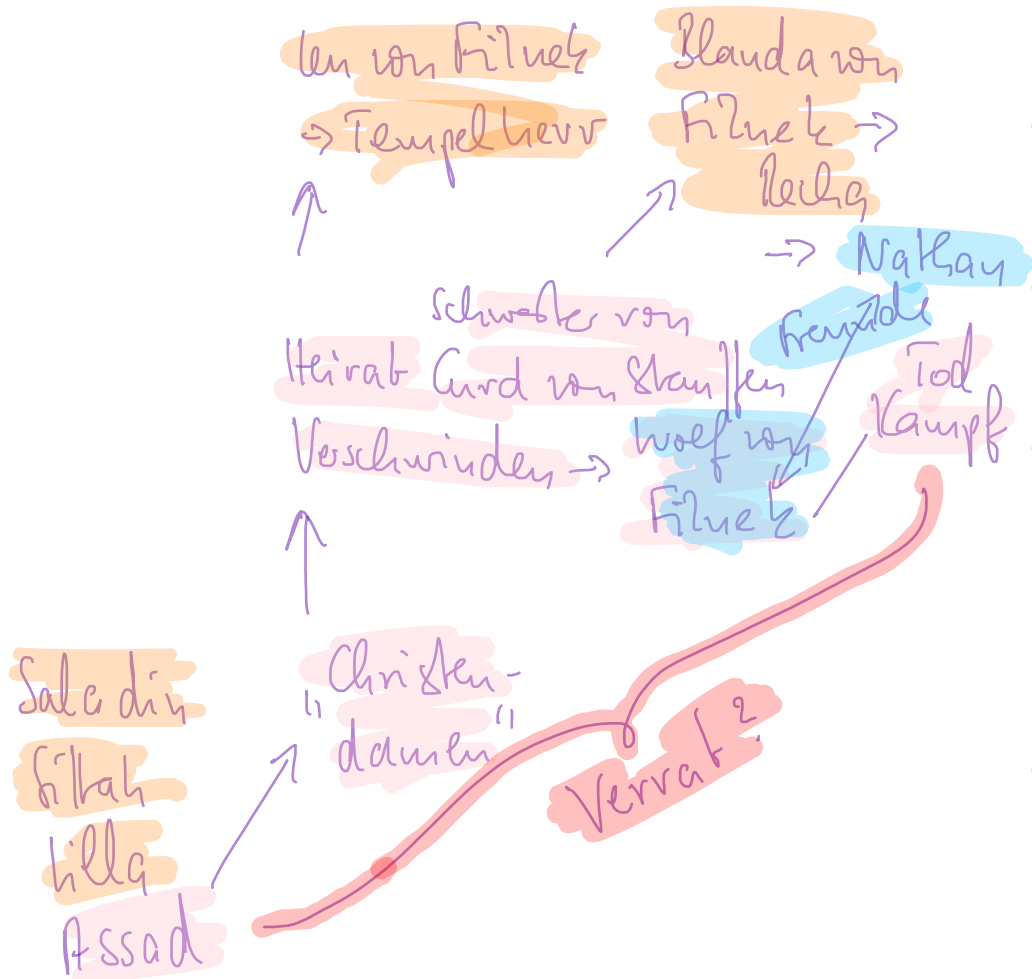 Leu von Filnek
→ Tempelherr
Blanda von
Filnek →
Recha
→ Nathan
Freunde
Schwester von
Heirat Curd von Stauffen
Verschwinden → Wolf von
Filnek
Tod
Kampf
"Christen-
damen"
Verrat?
Saladin
Sittah
Lilla
Assad